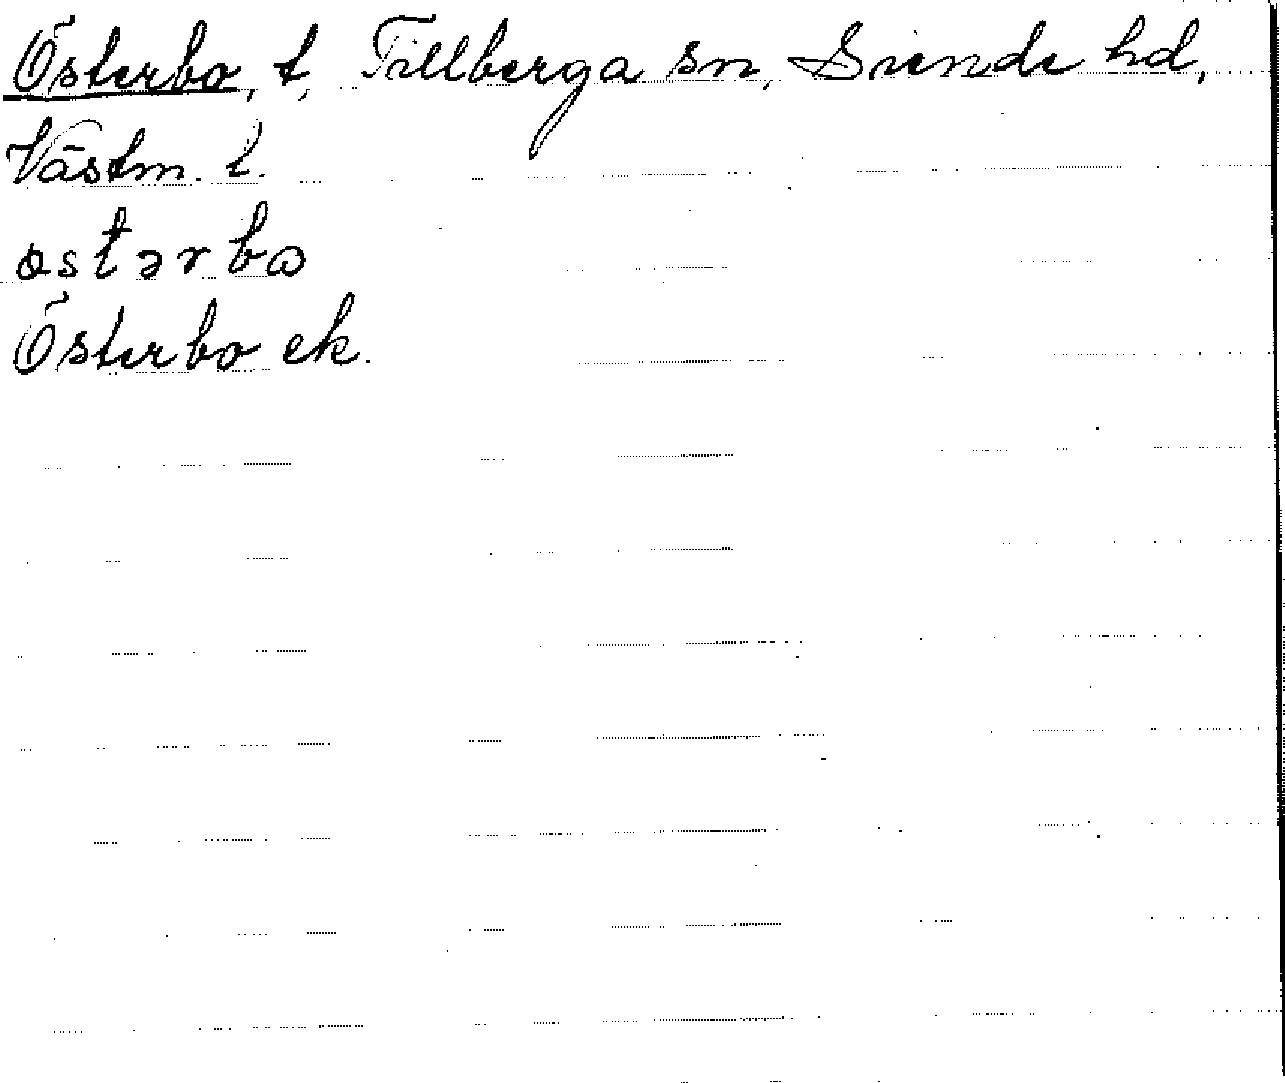 Österbo, t, Tillberga sn, Siende hd,
Västm. l.
östərbω
Österbo ek.